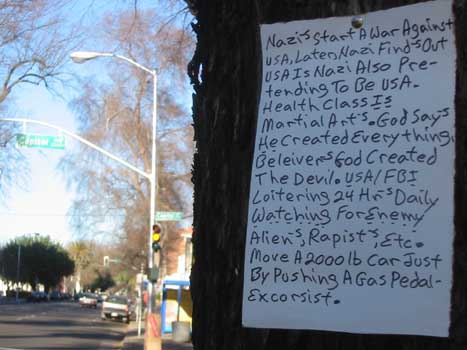 Nazi's Start A War Against
USA, Later, Nazi Finds Out
USA Is Nazi Also Pre-
tending To Be USA.
Health Class Is
Martial Art's. God Say's
He Created Everything.
Beleiver's God Created
The Devil. USA/FBI
Loitering 24 Hr's Daily
Watching For Enemy
Alien's, Rapist's, Etc.
Move A 2000 lb Car Just
By Pushing A Gas Pedal-
Excorsist.
Capitol